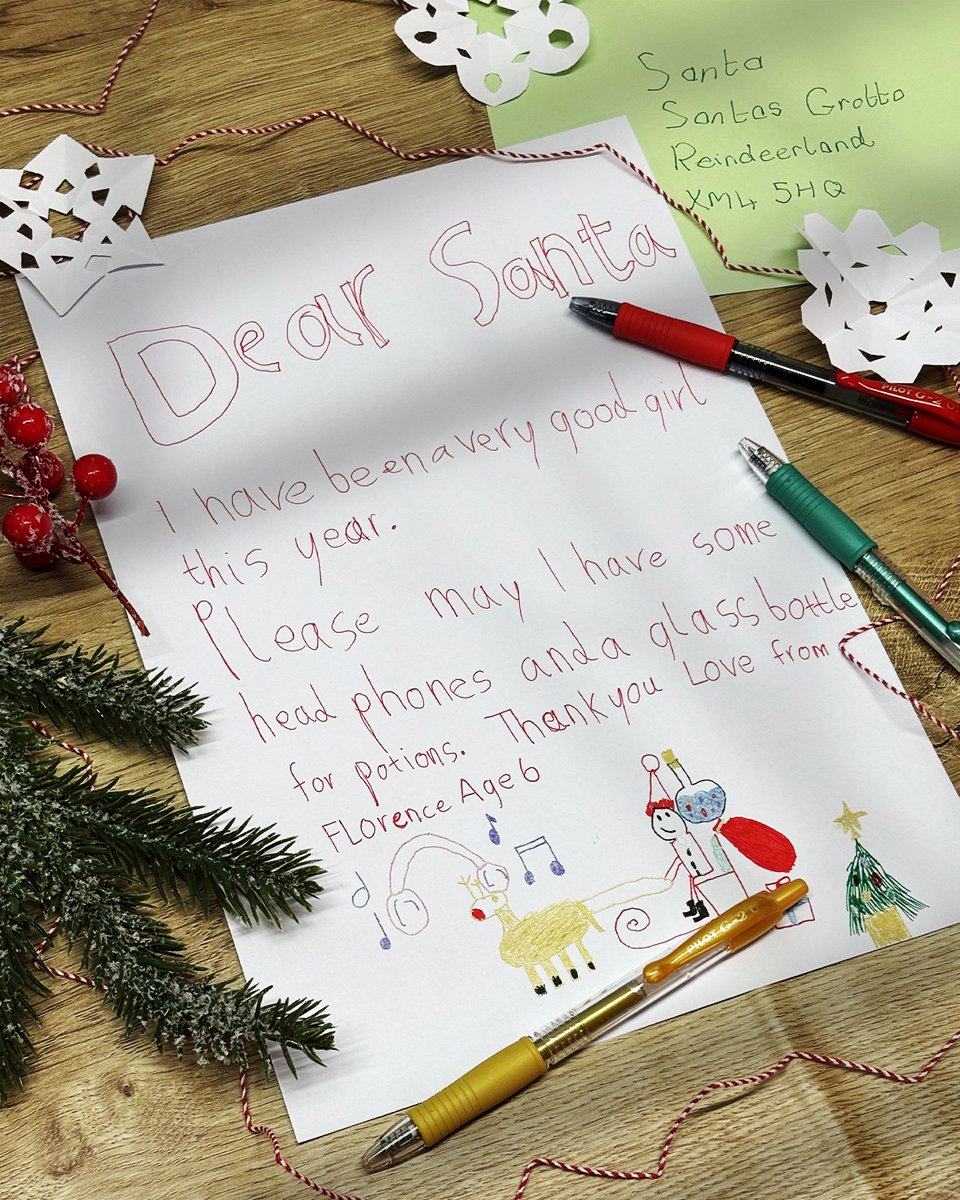 Santa
Santas Grotto
Reindeerland
XM4 5HQ
Dear Santa
I have been a very good girl
this year.
Please may I have some
head phones and a glass bottle
for potions. Thank you Love from
Florence Age 6
L
L
PILOT G-2
PILOT G-2